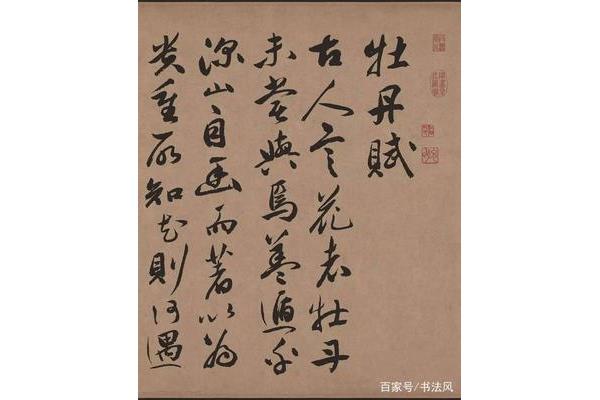 牡丹賦
古人言花者牡丹
未嘗與焉蓋遁乎
深山自幽而著以為
貴重所知花則何遇
百家号/书法风